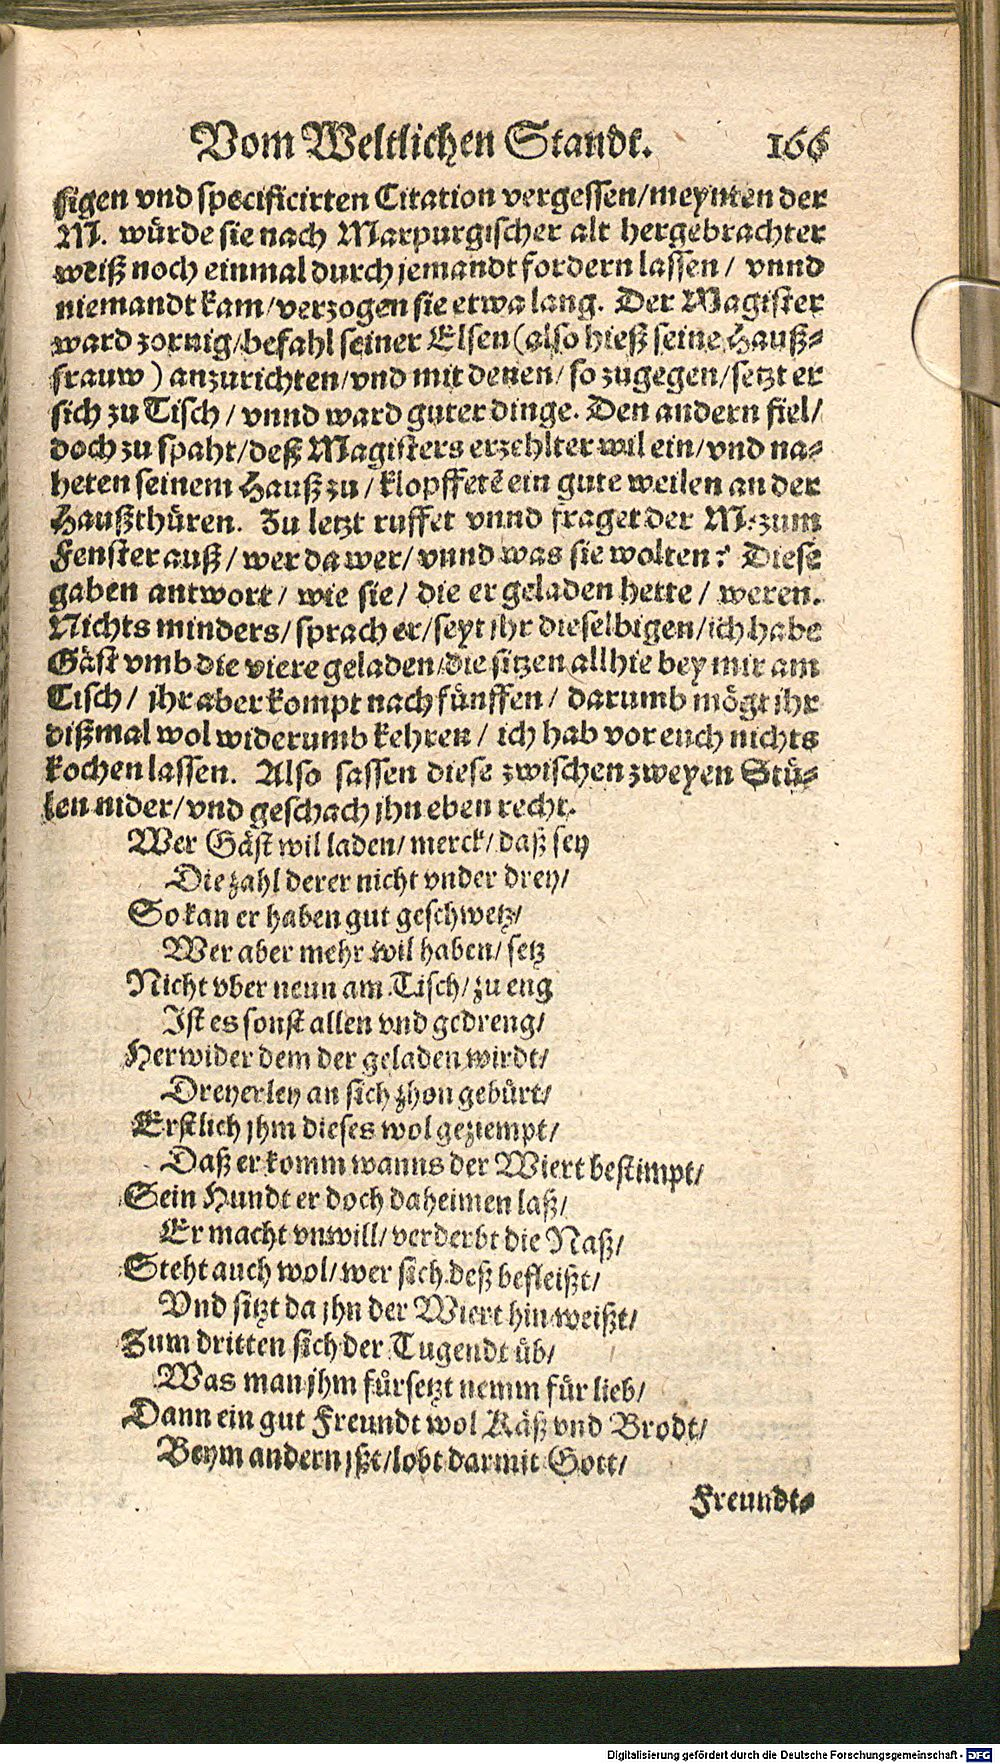 Vom Weltlichen Standt. 166
sigen vnd specificirten Citation vergessen/meynten der
M. würde sie nach Marpurgischer alt hergebrachter
weiß noch einmal durch jemandt fordern lassen/ vnnd
niemandt kam/verzogen sie etwa lang. Der Magister
ward zornig/befahl seiner Elsen (also hieß seine Hauß-
frauw) anzurichten/vnd mit denen/ so zugegen/setzt er
sich zu Tisch/ vnnd ward guter dinge. Den andern fiel/
doch zu spaht/deß Magisters erzehlter wil ein/vnd na-
heten seinem Hauß zu/ klopffetẽ ein gute weilen an der
Haußthüren. Zu letzt ruffet vnnd fraget der M. zum
Fenster auß/ wer da wer/ vnnd was sie wolten? Diese
gaben antwort/ wie sie/ die er geladen hette/ weren.
Nichts minders/sprach er/seyt jhr dieselbigen/ich habe
Gäst vmb die viere geladen/die sitzen allhie bey mir am
Tisch/ jhr aber kompt nach fünffen/ darumb mögt jhr
dißmal wol widerumb kehren/ ich hab vor euch nichts
kochen lassen. Also sassen diese zwischen zweyen Stü-
len nider/vnd geschach jhn eben recht.
Wer Gäst wil laden/ merck/ daß sey
Die zahl derer nicht vnder drey/
So kan er haben gut geschwetz/
Wer aber mehr wil haben/ setz
Nicht vber neun am Tisch/ zu eng
Ist es sonst allen vnd gedreng/
Herwider dem der geladen wirdt/
Dreyerley an sich zhon gebürt/
Erstlich jhm dieses wol geziempt/
Daß er komm wanns der Wiert bestimpt/
Sein Hundt er doch daheimen laß/
Er macht vnwill/ verderbt die Naß/
Steht auch wol/ wer sich deß befleißt/
Vnd sitzt da jhn der Wiert hin weißt/
Zum dritten sich der Tugendt üb/
Was man jhm fürsetzt nemm für lieb/
Dann ein gut Freundt wol Käß vnd Brodt/
Beym andern jßt/lobt darmit Gott/
Freundt-
Digitalisierung gefördert durch die Deutsche Forschungsgemeinschaft - DFG